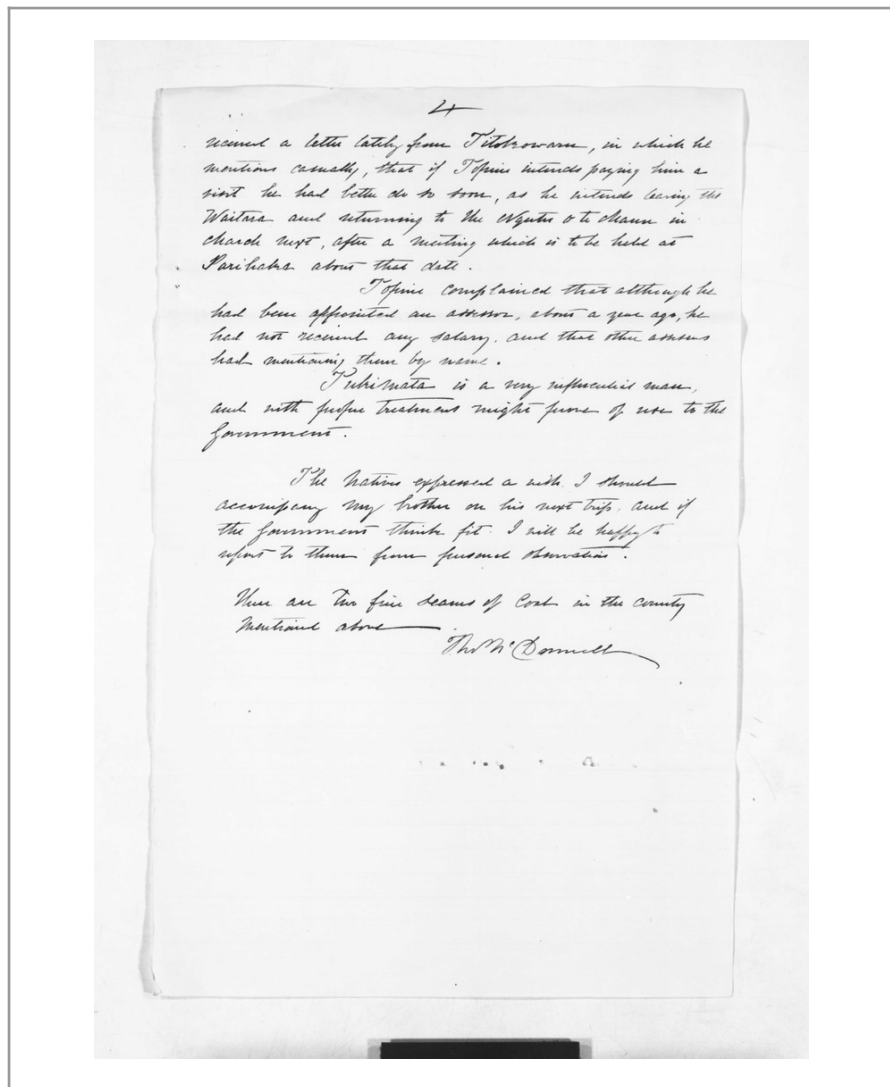 4
received a letter lately from Titokowaru, in which he
mentions casually, that if Topine intends paying him a
visit he had better do so soon, as he intends leaving the
Waitara and returning to the in
March next, after a meeting which is to be held at
Parihaka about that date.
Topine complained that although he
had been appointed an assessor, about a year ago, he
had not received any salary, and that other assessors
had mentioning them by name.
is a very influential man,
and with proper treatment might prove of use to the
Government.
The Natives expressed a wish I should
accompany my brother on his next trip, and if
the Government think fit I will be happy to
report to them from personal observation.
There are two fine seams of Coal in the country
mentioned above
Thos McDonnell